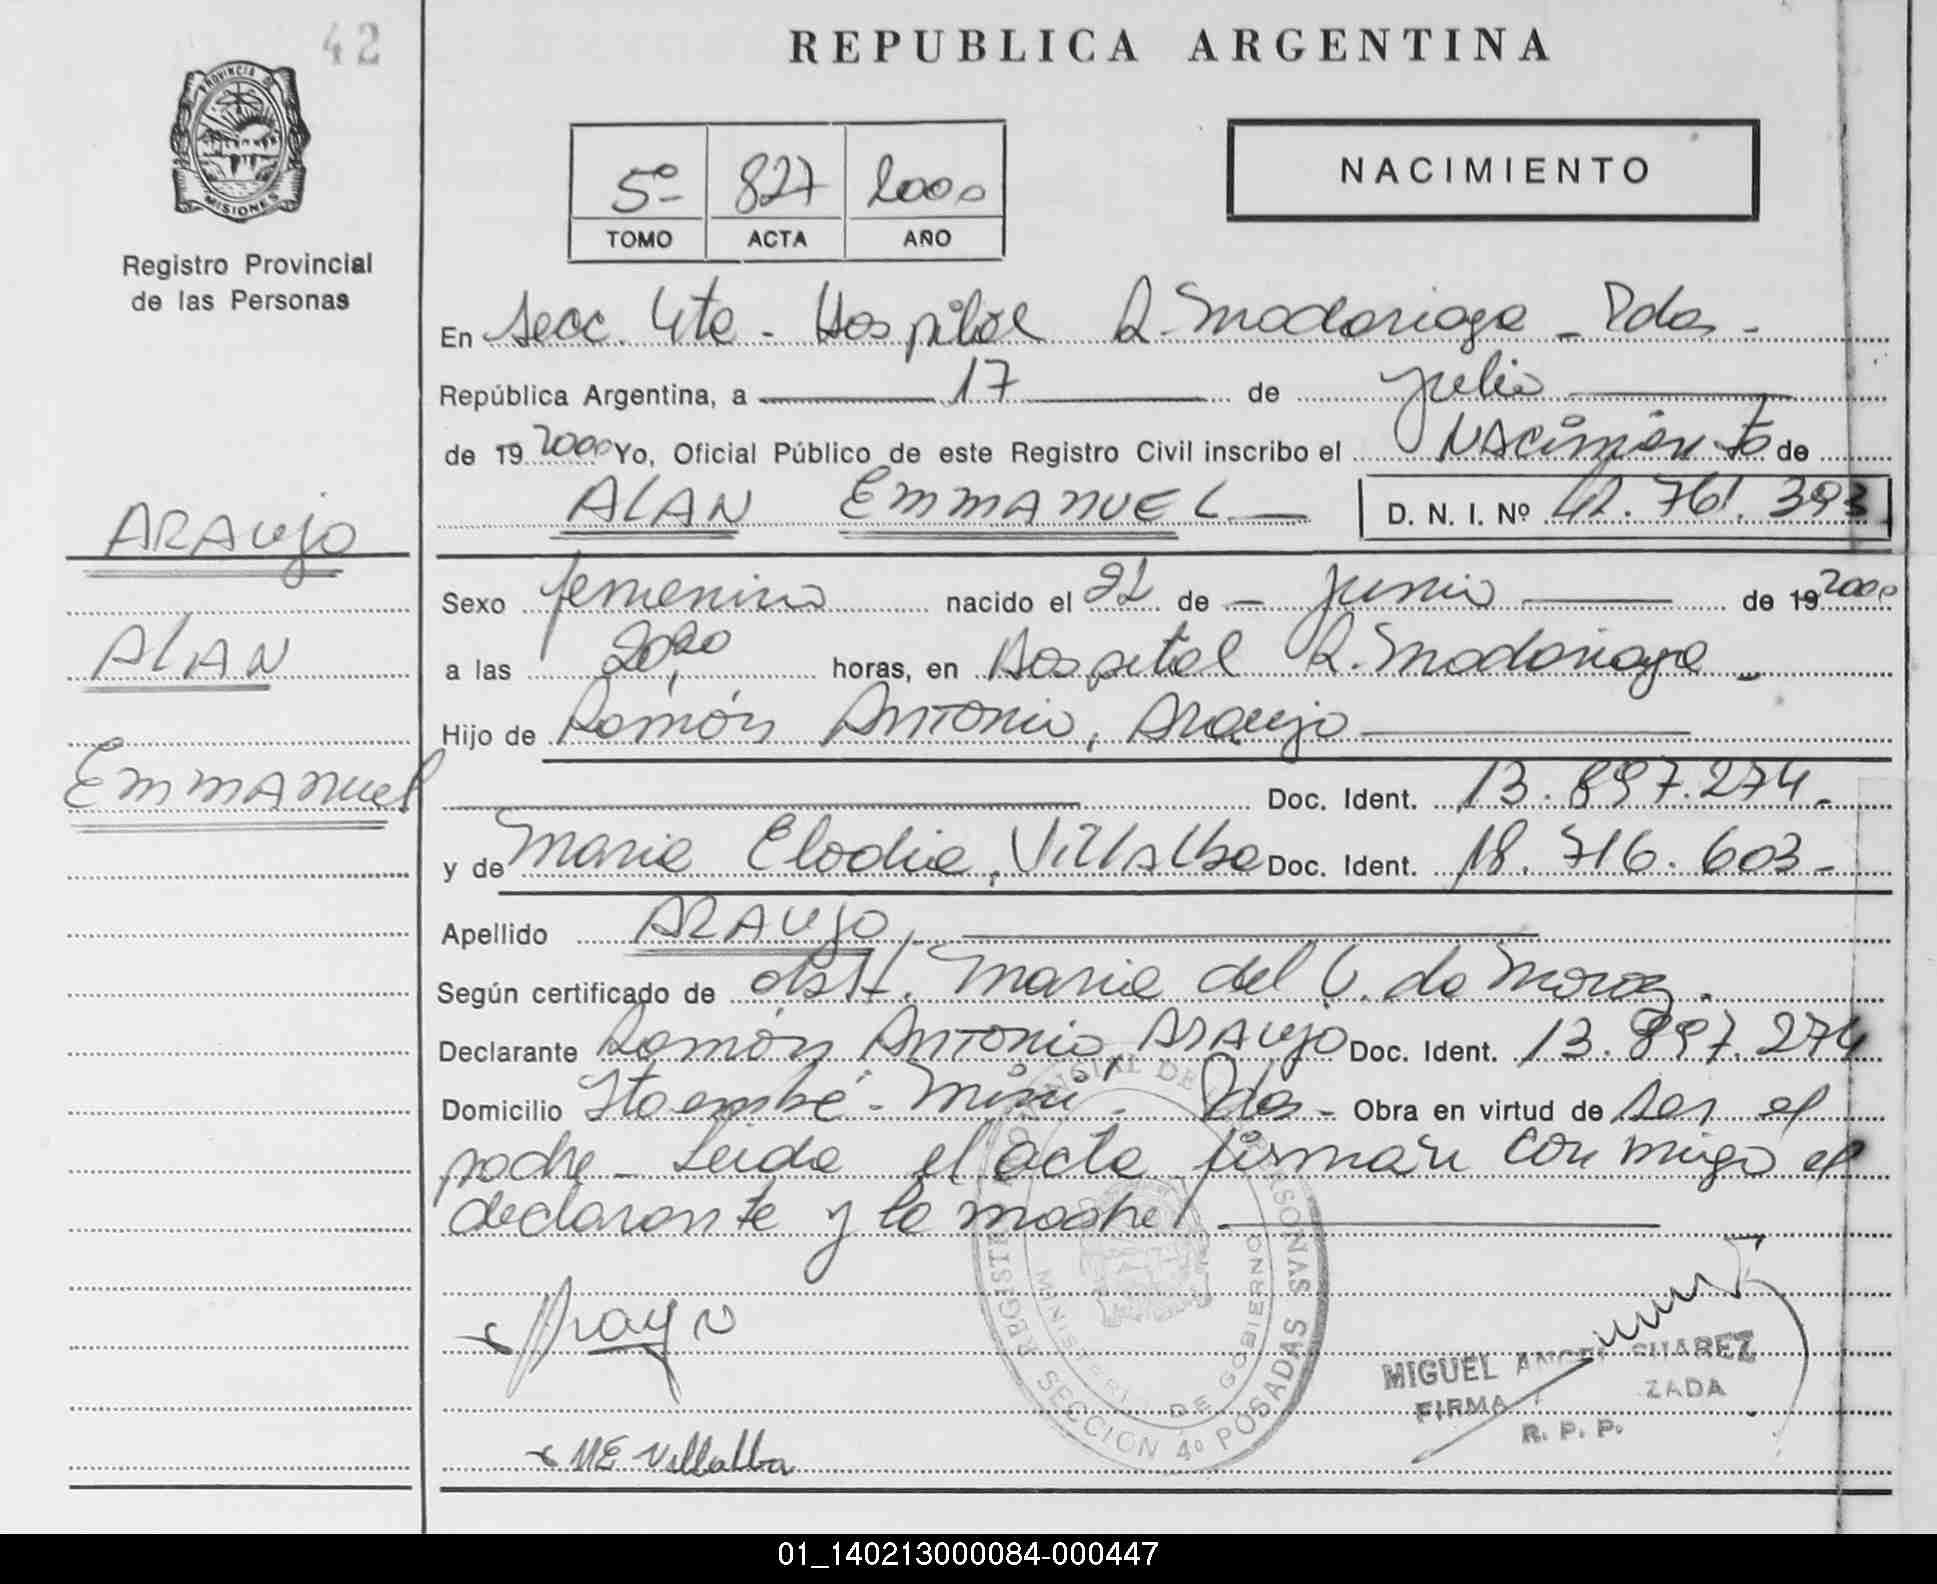 42
REPUBLICA ARGENTINA
PROVINCIA DE
MISIONES
Registro Provincial
de las Personas
5º 827 2000
TOMO ACTA AÑO
NACIMIENTO
En Secc. 4ta - Hospital R. Madariaga - Pdas -
República Argentina, a 17 de julio
de 19 2000 Yo, Oficial Público de este Registro Civil inscribo el Nacimiento de
ALAN EMMANUEL D. N. I. Nº 42.761.393
ARAUJO
ALAN
EMMANUEL
Sexo femenino nacido el 22 de - junio de 19 2000
a las 20,20 horas, en Hospital R. Madariaga -
Hijo de Ramón Antonio, Araujo
Doc. Ident. 13.897.274-
y de Maria Elodia, Villalba Doc. Ident. 18.716.603-
Apellido ARAUJO
Según certificado de obst. Maria del C. de
Declarante Ramón Antonio, Araujo Doc. Ident. 13.897.274
Domicilio Itaembé - Mini - Pdas - Obra en virtud de ser el
padre - Leida el acta firman con migo el
declarante y la madre
Araujo
ME Villalba
SECCION 4º POSADAS
MINISTERIO DE GOBIERNO
MIGUEL ANGEL SUAREZ
FIRMA ZADA
R. P. P.
01_140213000084-000447